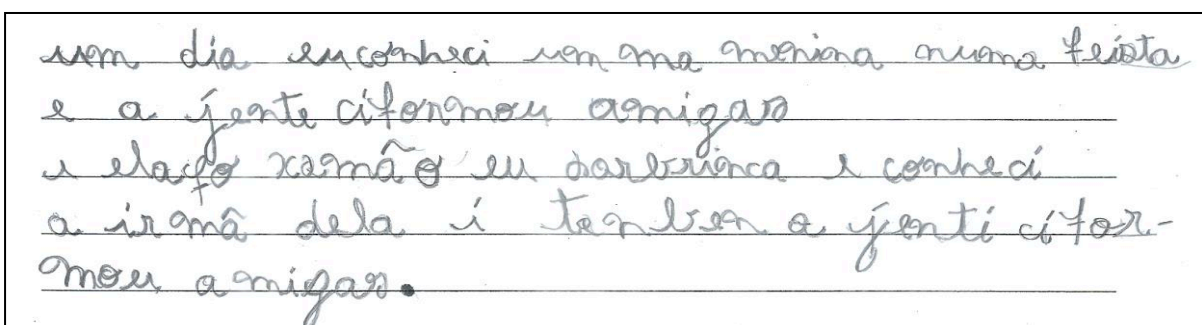 uem dia euconheci uem ma menina numa feista
e a jente ciformou amigas
e elafo xamão eu sarbrinca e conheci
a irmã dela i tenben a jenti cifor-
mou amigas.